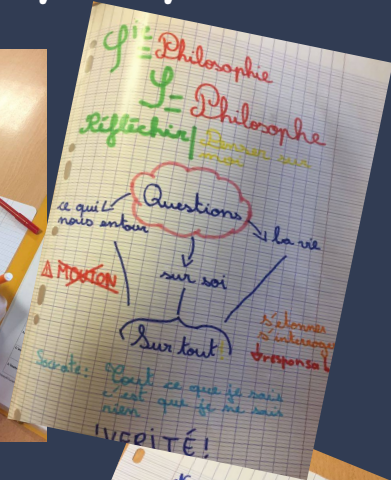 φ = Philosophie
φ = Philosophe
Réfléchir/
Questions
ce qui
nous entour
la vie
sur soi
⚠ MOUTON
Sur tout
s'étonner
s'interroger
Socrate: Tout ce que je sais
c'est que je ne sais
rien
!VERITÉ!